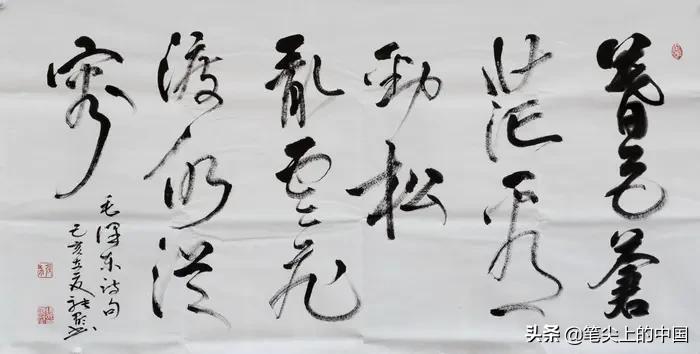 暮色蒼
茫看
勁松
亂雲飛
渡仍從
容
毛澤東詩句
己亥立夏
头条 @笔尖上的中国